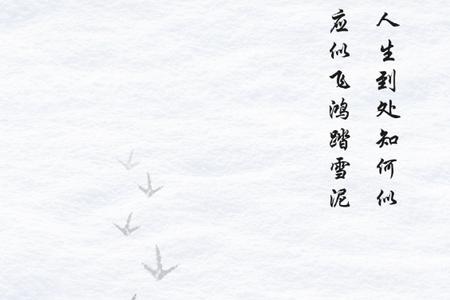 人生到处知何似
应似飞鸿踏雪泥